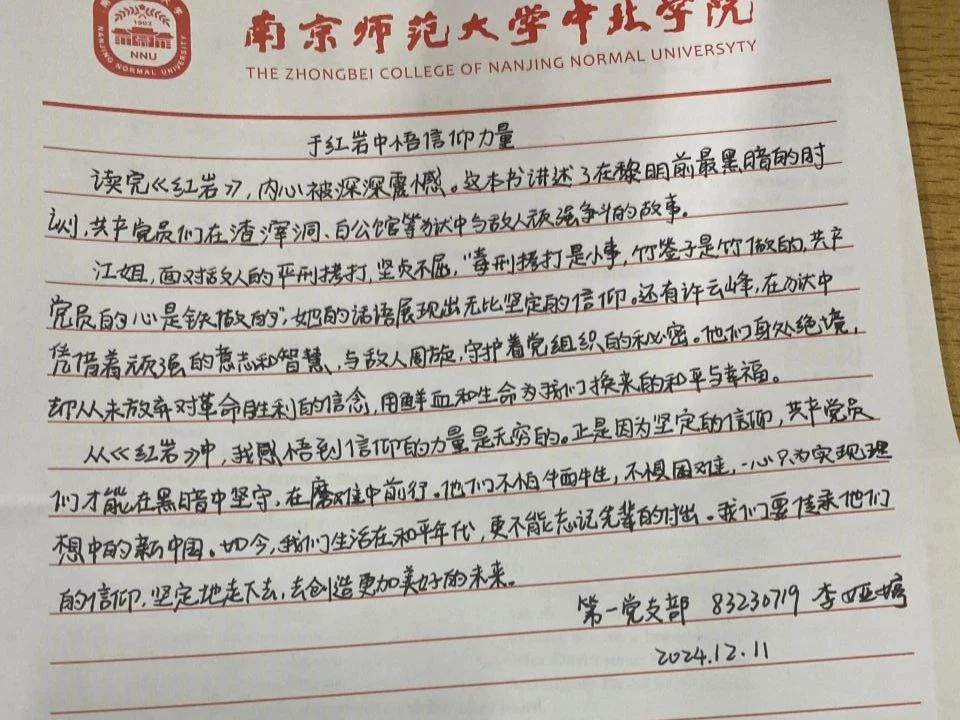 1902
NNU
NANJING NORMAL UNIVERSITY
南京师范大学中北学院
THE ZHONGBEI COLLEGE OF NANJING NORMAL UNIVERSYTY
于红岩中悟信仰力量
读完《红岩》，内心被深深震憾。这本书讲述了在黎明前最黑暗的时
刻，共产党员们在渣滓洞、白公馆等狱中与敌人顽强争斗的故事。
江姐，面对敌人的严刑拷打，坚贞不屈，“毒刑拷打是小事，竹签子是竹做的，共产
党员的心是铁做的”，她的话语展现出无比坚定的信仰。还有许云峰，在狱中
凭借着顽强的意志和智慧，与敌人周旋，守护着党组织的秘密。他们身处绝境，
却从未放弃对革命胜利的信念，用鲜血和生命为我们换来的和平与幸福。
从《红岩》中，我感悟到信仰的力量是无穷的。正是因为坚定的信仰，共产党员
们才能在黑暗中坚守，在磨难中前行。他们不怕牺牲，不惧困难，一心只为实现理
想中的新中国。如今，我们生活在和平年代，更不能忘记先辈的付出。我们要传承他们
的信仰，坚定地走下去，去创造更加美好的未来。
第一党支部 83230719 李娅婷
2024.12.11